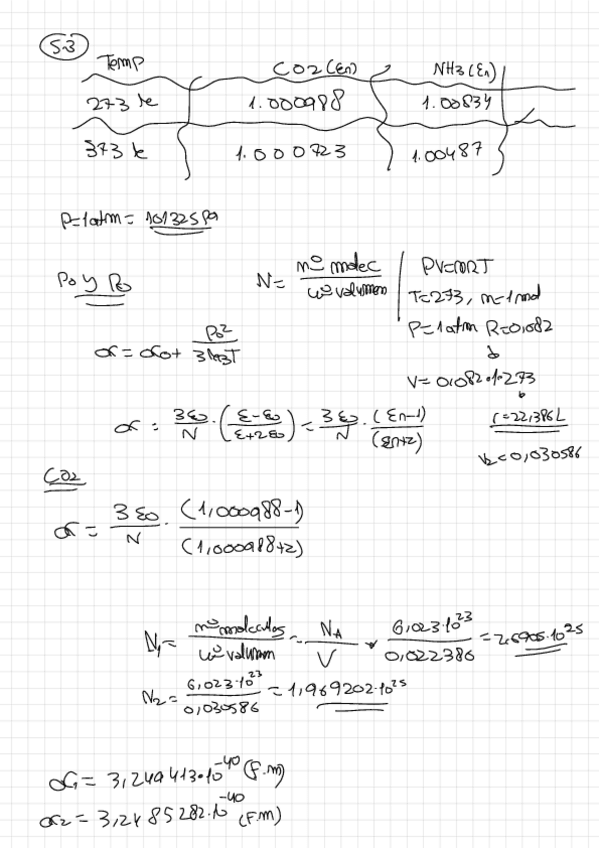 5.3
Temp CO2 (εn) NH3 (εn)
273 k 1.000988 1.00834
373 k 1.000723 1.00487
P=1atm = 101325 Pa
P0 y P0
N = nº molec / uº volumen
PV=nRT
T=273, n=1 mol
P=1atm R=0,082
V= 0,082·1·273
α = α0 + P0² / 3kBT
α = 3ε0/N · (ε-ε0 / ε+2ε0) = 3ε0/N · (εn-1)/(εn+2)
V=22,386L
V2=0,030586
CO2
α = 3ε0/N · (1,000988-1)/(1,000988+2)
N1 = nº moleculas / uº volumen = NA/V = 6,023·10²³ / 0,022386 = 2,6905·10²⁵
N2 = 6,023·10²³ / 0,030586 = 1,969202·10²⁵
α1 = 3,249413·10⁻⁴⁰ (F.m)
α2 = 3,2485282·10⁻⁴⁰ (F.m)